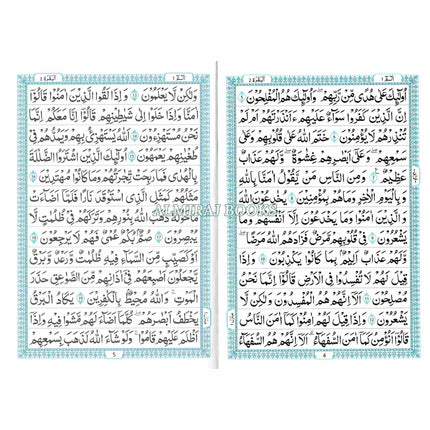 البقرة ٢
الٓمّٓ ١
اُولٰٓئِكَ عَلٰى هُدًى مِّنْ رَّبِّهِمْ وَاُولٰٓئِكَ هُمُ الْمُفْلِحُوْنَ
اِنَّ الَّذِيْنَ كَفَرُوْا سَوَآءٌ عَلَيْهِمْ ءَاَنْذَرْتَهُمْ اَمْ لَمْ
تُنْذِرْهُمْ لَا يُؤْمِنُوْنَ خَتَمَ اللّٰهُ عَلٰى قُلُوْبِهِمْ وَعَلٰى
سَمْعِهِمْ وَعَلٰٓى اَبْصَارِهِمْ غِشَاوَةٌ وَّلَهُمْ عَذَابٌ
عَظِيْمٌ وَمِنَ النَّاسِ مَنْ يَّقُوْلُ اٰمَنَّا بِاللّٰهِ
وَبِالْيَوْمِ الْاٰخِرِ وَمَا هُمْ بِمُؤْمِنِيْنَ يُخٰدِعُوْنَ اللّٰهَ
وَالَّذِيْنَ اٰمَنُوْا وَمَا يَخْدَعُوْنَ اِلَّآ اَنْفُسَهُمْ وَمَا
يَشْعُرُوْنَ فِيْ قُلُوْبِهِمْ مَّرَضٌ فَزَادَهُمُ اللّٰهُ مَرَضًا
وَلَهُمْ عَذَابٌ اَلِيْمٌۢ بِمَا كَانُوْا يَكْذِبُوْنَ وَاِذَا
قِيْلَ لَهُمْ لَا تُفْسِدُوْا فِى الْاَرْضِ قَالُوْٓا اِنَّمَا نَحْنُ
مُصْلِحُوْنَ اَلَآ اِنَّهُمْ هُمُ الْمُفْسِدُوْنَ وَلٰكِنْ لَّا
يَشْعُرُوْنَ وَاِذَا قِيْلَ لَهُمْ اٰمِنُوْا كَمَآ اٰمَنَ النَّاسُ
قَالُوْٓا اَنُؤْمِنُ كَمَآ اٰمَنَ السُّفَهَآءُ اَلَآ اِنَّهُمْ هُمُ السُّفَهَآءُ
4
البقرة ٢
الٓمّٓ ١
وَلٰكِنْ لَّا يَعْلَمُوْنَ وَاِذَا لَقُوا الَّذِيْنَ اٰمَنُوْا قَالُوْٓا
اٰمَنَّا وَاِذَا خَلَوْا اِلٰى شَيٰطِيْنِهِمْ قَالُوْٓا اِنَّا مَعَكُمْ اِنَّمَا
نَحْنُ مُسْتَهْزِءُوْنَ اَللّٰهُ يَسْتَهْزِئُ بِهِمْ وَيَمُدُّهُمْ فِيْ
طُغْيَانِهِمْ يَعْمَهُوْنَ اُولٰٓئِكَ الَّذِيْنَ اشْتَرَوُا الضَّلٰلَةَ
بِالْهُدٰى فَمَا رَبِحَتْ تِّجَارَتُهُمْ وَمَا كَانُوْا مُهْتَدِيْنَ
مَثَلُهُمْ كَمَثَلِ الَّذِى اسْتَوْقَدَ نَارًا فَلَمَّآ اَضَآءَتْ
مَا حَوْلَهٗ ذَهَبَ اللّٰهُ بِنُوْرِهِمْ وَتَرَكَهُمْ فِيْ ظُلُمٰتٍ لَّا
يُبْصِرُوْنَ صُمٌّۢ بُكْمٌ عُمْيٌ فَهُمْ لَا يَرْجِعُوْنَ
اَوْ كَصَيِّبٍ مِّنَ السَّمَآءِ فِيْهِ ظُلُمٰتٌ وَّرَعْدٌ وَّبَرْقٌ
يَجْعَلُوْنَ اَصَابِعَهُمْ فِيْٓ اٰذَانِهِمْ مِّنَ الصَّوَاعِقِ حَذَرَ
الْمَوْتِ وَاللّٰهُ مُحِيْطٌۢ بِالْكٰفِرِيْنَ يَكَادُ الْبَرْقُ
يَخْطَفُ اَبْصَارَهُمْ كُلَّمَآ اَضَآءَ لَهُمْ مَّشَوْا فِيْهِ وَاِذَآ
اَظْلَمَ عَلَيْهِمْ قَامُوْا وَلَوْ شَآءَ اللّٰهُ لَذَهَبَ بِسَمْعِهِمْ
5
AL MIRAJ BOOKS